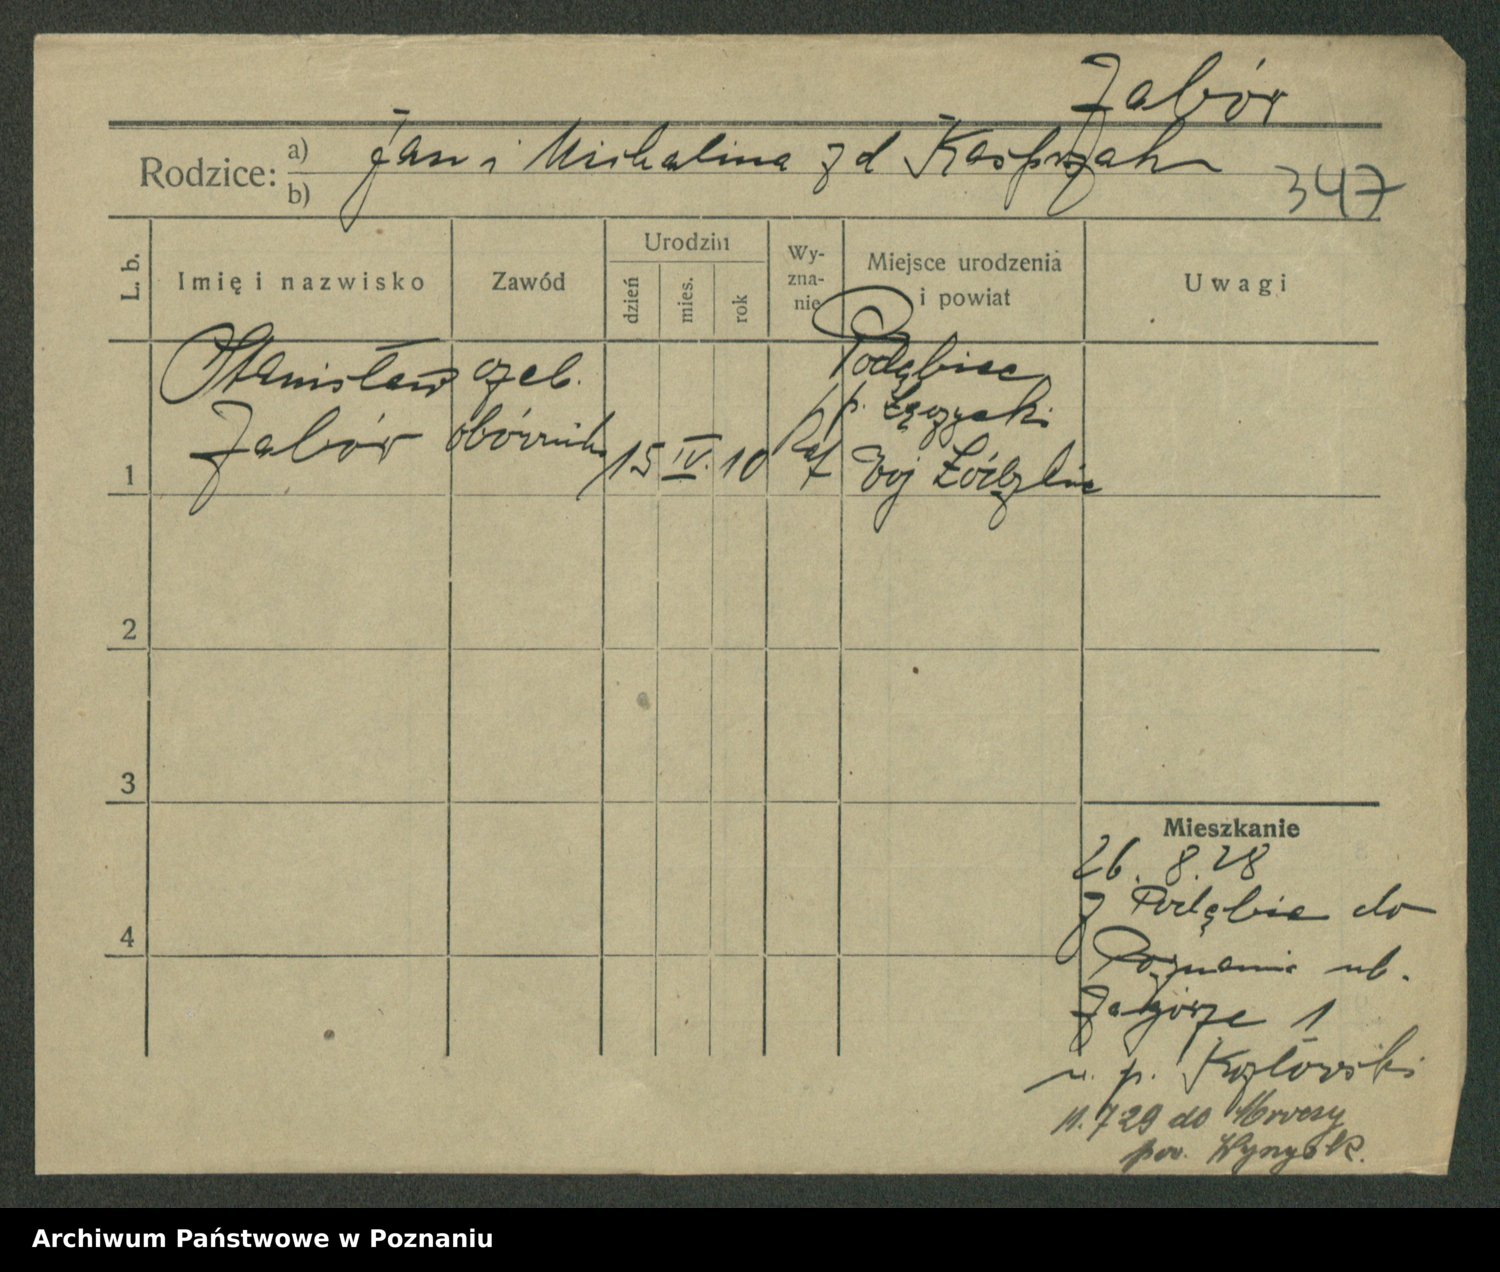 Zabór
Rodzice: a) b) Jan i Michalina z d Kasprzak
347
L. b.
Imię i nazwisko
Zawód
Urodzin
dzień
mies.
rok
Wy-
zna-
nie
Miejsce urodzenia
i powiat
Uwagi
Stanisław
Zabór
czel.
obórnik
15 IV. 10
kat
Podębice
p. Łęczycki
Woj Łódzkie
1
2
3
4
Mieszkanie
26. 8. 28
z Podębic do
Poznania ul.
Zagórze 1
u. p. Kozłowski
11.7 29 do Mroczy
pow. Wyrzysk.
Archiwum Państwowe w Poznaniu